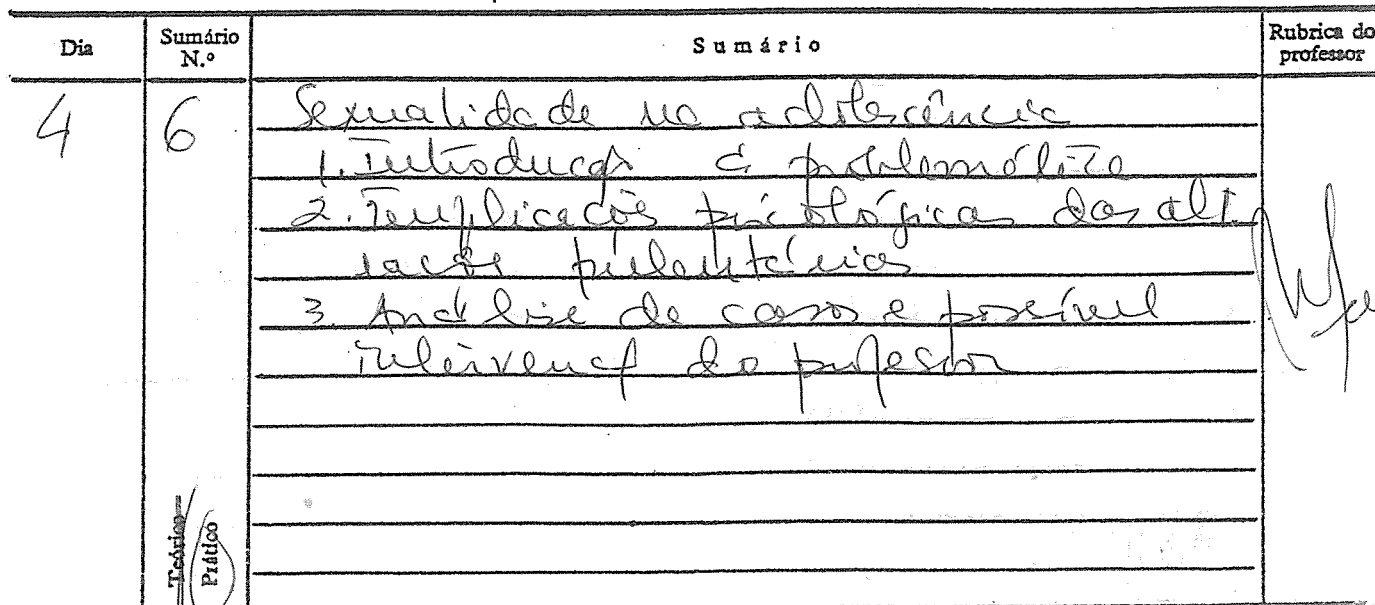 Dia
Sumário N.º
Sumário
Rubrica do professor
4
6
Sexualidade na adolescência
1. Introdução à problemática
2. Implicações psicológicas das alte
rações pubertárias
3. Análise de casos e possível
intervenção do professor
Teórico
Prático